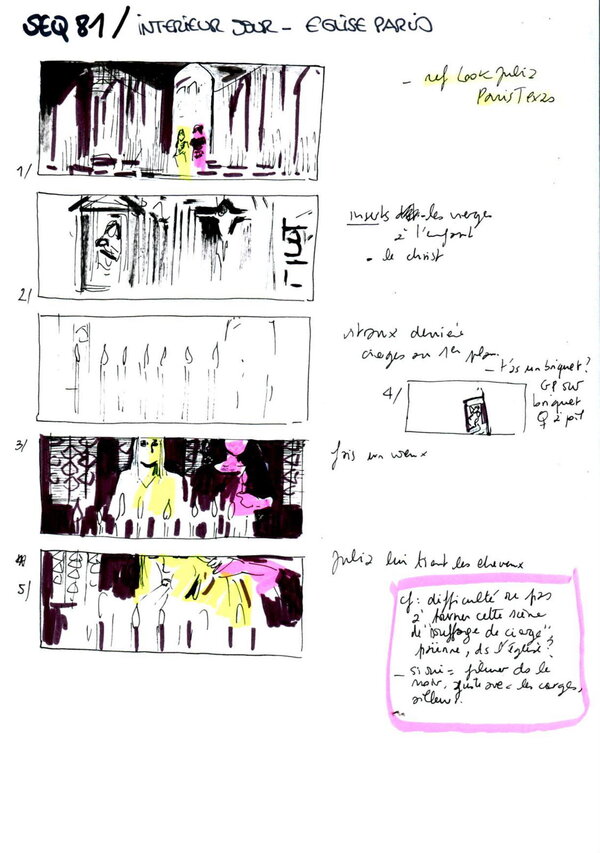 SEQ 81 / INTERIEUR JOUR - EGLISE PARIS
- ref Look Julia
Paris Texas
1/
inserts les vierges
à l'enfant
- le christ
2/
vitraux derrière
cierges au 1er plan.
- t'as un briquet?
4/
GP sur
briquet
à poil
3/
fais un vœux
5/
Julia lui tient les cheveux
cf: difficulté ne pas
à tourner cette scène
de "soufflage de cierge"
ds l'église?
- si oui = filmer ds le
noir, juste avec les cierges,
ailleurs.